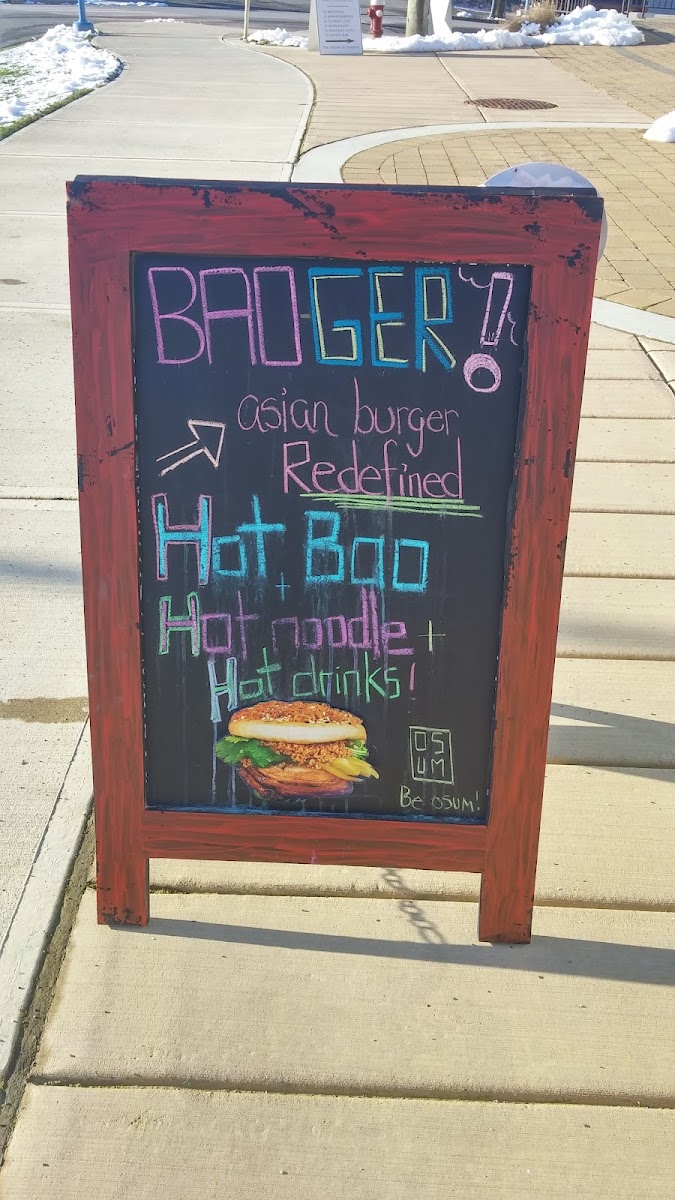 BAO-GER!
asian burger
Redefined
Hot Bao
+
Hot noodle +
Hot drinks!
OS
UM
Be osum!